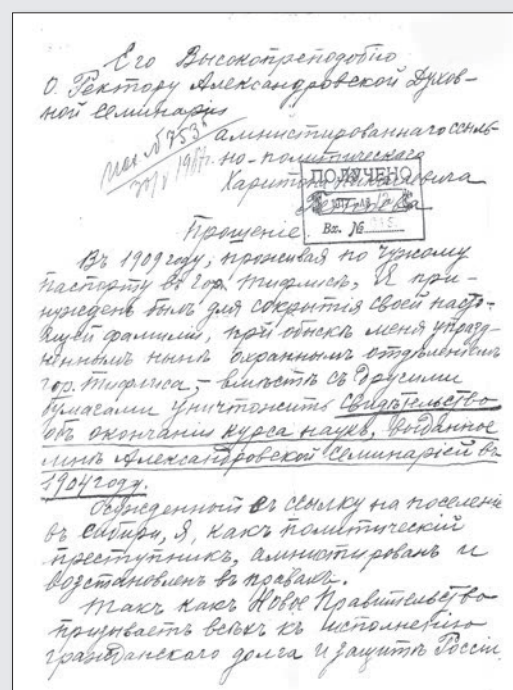 Его Высокопреподобію
О. Ректору Александровской Духов-
ной Семинаріи
амнистированнаго ссыль-
но-политическаго
Харитона
ПОЛУЧЕНО
Вх. №
Прошеніе.
Въ 1909 году, проживая по чужому
паспорту въ гор. Тифлисѣ, Я при-
нужденъ былъ для сокрытія своей насто-
ящей фамиліи, при обыскѣ меня упразд-
неннымъ нынѣ охраннымъ отдѣленіемъ
гор. Тифлиса, – вмѣстѣ съ другими
бумагами уничтожить свидѣтельство
объ окончаніи курса наукъ, выданное
мнѣ Александровской Семинаріей въ
1904 году.
Осужденный въ ссылку на поселеніе
въ Сибири, Я, какъ политическій
преступникъ, амнистированъ и
возстановленъ въ правахъ.
Такъ какъ Новое Правительство
призываетъ всѣхъ къ исполненію
гражданскаго долга и защитѣ Россіи